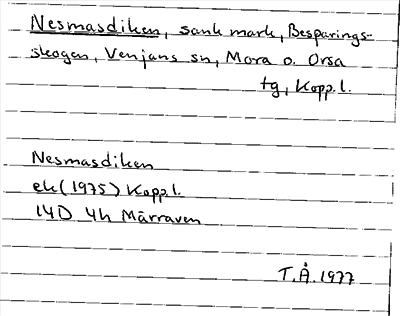 Nesmasdiken, sank mark, Besparings-
skogen, Venjans sn, Mora o. Orsa
tg, Kopp.l.
Nesmasdiken
ek(1975) Kopp.l.
14D 4h Märraven
T.Å. 1977